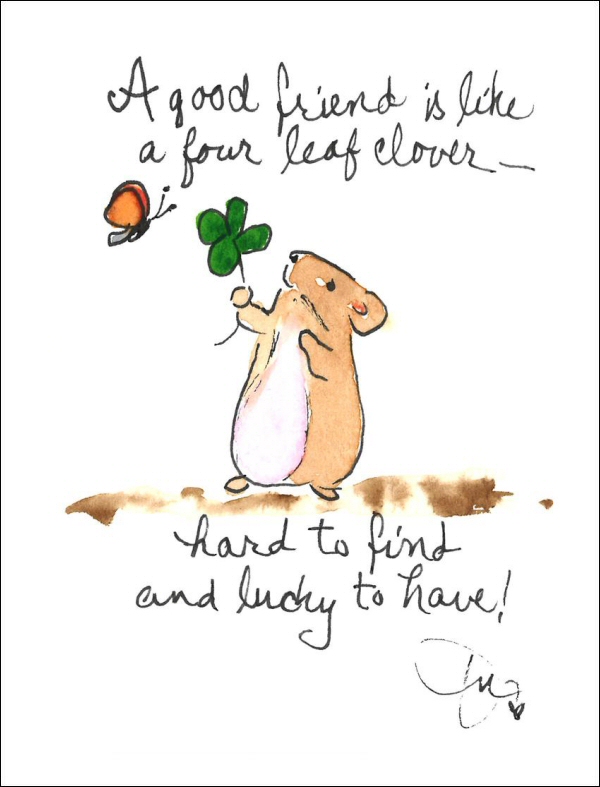 A good friend is like
a four leaf clover —
hard to find
and lucky to have!